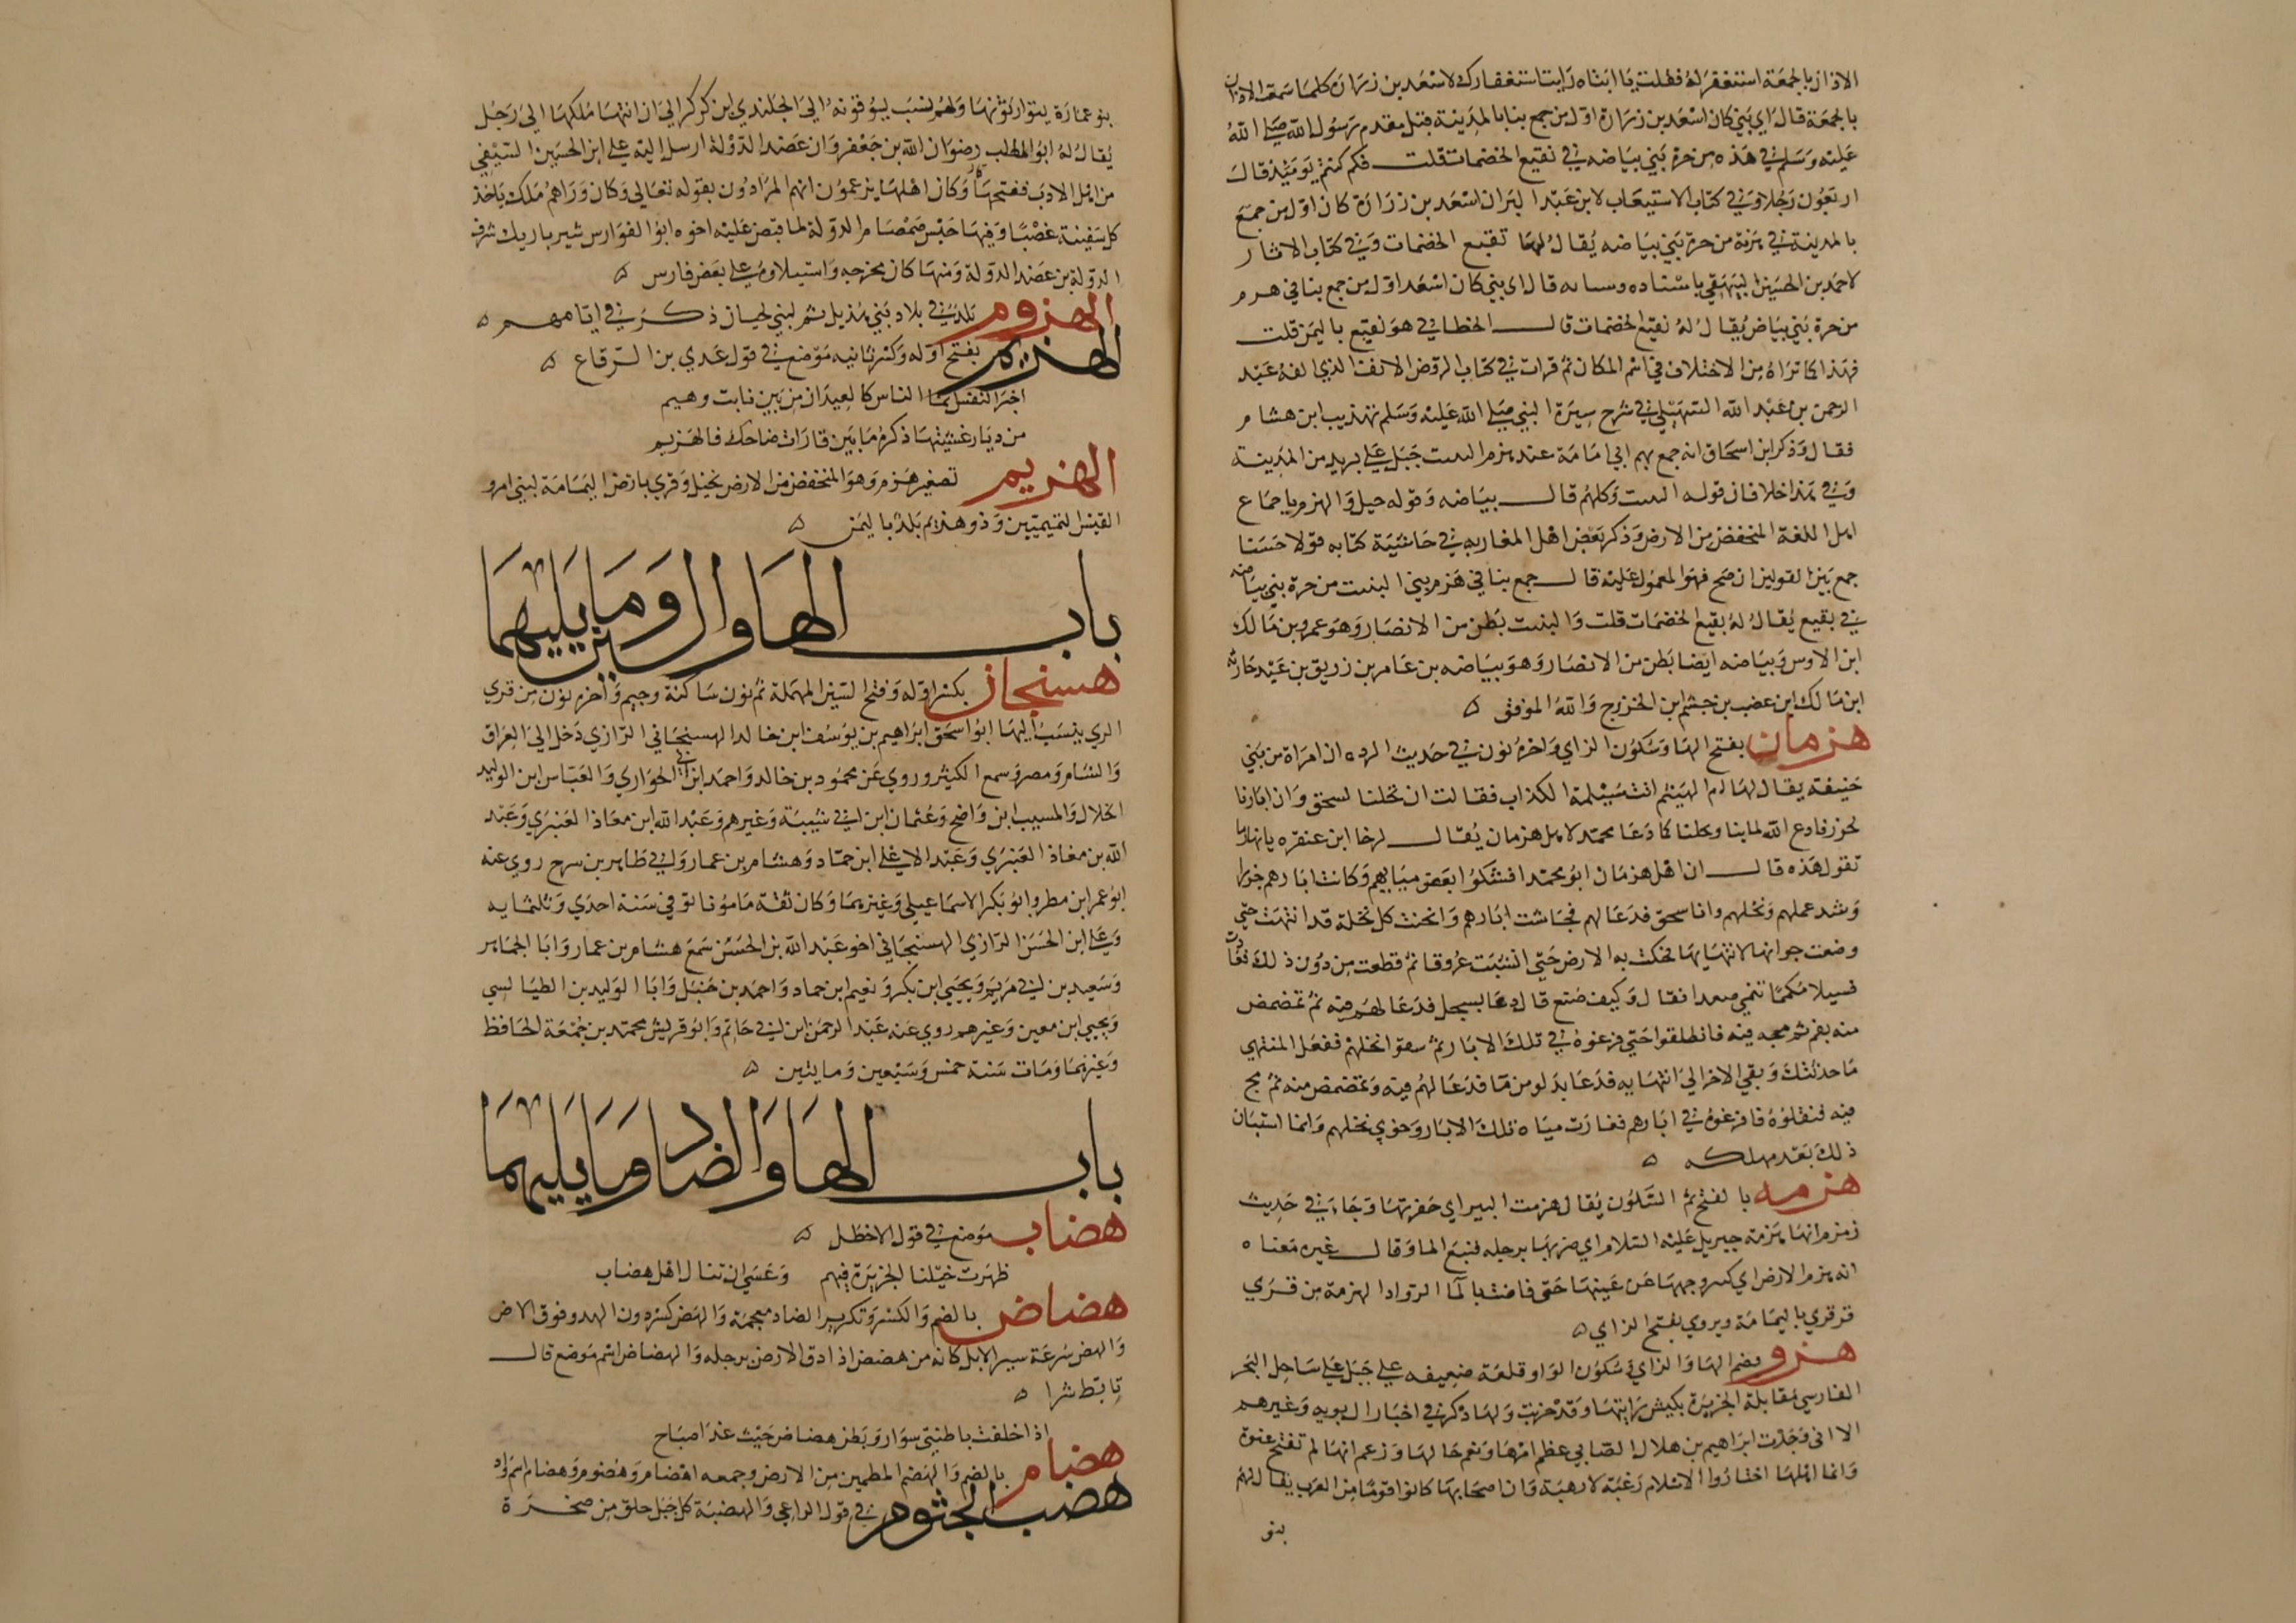 الاذان بالجمعة استغفر له فقلت يا ابتاه رايت استغفارك لاسعد بن زرارة كلما سمعت الاذان
بالجمعة قال اي بني كان اسعد بن زرارة اول من جمع بنا بالمدينة قبل مقدم رسول الله صلى الله
عليه وسلم في هذه من حرة بني بياضه في نقيع الخضمات قلت فكم كنتم يومئذ قال
اربعون رجلا وفي كتاب الاستيعاب لابن عبد البران اسعد بن زرارة كان اول من جمع
بالمدينة في هزمة من حرة بني بياضه يقال لها نقيع الخضمات وفي كتاب الاثار
لاحمد بن الحسين البيهقي باسناده قال اي بني كان اسعد اول من جمع بنا في هرم
من حرة بني بياض يقال له نقيع الخضمات قال الخطابي هو نقيع باليمز قلت
فهذا كما تراه من الاختلاف في اسم المكان ثم قرات في كتاب الروض الانف الذي الفه عبد
الرحمن بن عبد الله السهيلي في شرح سيرة النبي صلى الله عليه وسلم تهذيب ابن هشام
فقال وذكر ابن اسحاق انه جمع بهم ابي امامة عند هزم جبل على بريد من المدينة
وفي هذا خلافان قوله وكلهم قال بياضه وقوله جبل والهزم باجماع
اهل اللغة المنخفض من الارض وذكر بعض اهل المغاربه في حاشية كتابه قولا حسنا
جمع بين القولين ان صح فهو المعمول عليه قال جمع بنا في هزم بني النبيت من حرة بني بياضه
في بقيع يقال له بقيع الخضمات قلت والنبيت بطن من الانصار وهو عمرو بن مالك
ابن الاوس وبياضه ايضا بطن من الانصار وهو بياضه بن عامر بن زريق بن عبد حارثه
ابن مالك ابن عضب بن جشم ابن الخزرج والله الموفق
هزمان بفتح الها وسكون الزاي واخره نون في حديث الرده ان امراة من بني
حنيفة يقال لها ام الهيثم اتت مسيلمة الكذاب فقالت ان نخلنا لسحق وان ابارنا
لحرز فادع الله لمابنا ونخلنا كما دعا محمد لاهل هزمان يقال لرخا ابن عنقره يا نهار ما
تقول هذه قال ان اهل هزمان ابو محمدا فشكوا بعض ميابهم وكانت ابارهم جرزا
وشد عملهم ونخلهم وانا سحق فدعا لهم فجاشت ابارهم وانحنت كل نخلة قد انتهت حتى
وضعت جرانها لانتهايها فحكت به الارض حتى انشبت عروقا ثم قطعت من دون ذلك فعادت
فسيلا مكمما تنمي صعدا فقال وكيف صنع قال دعا بسجل فدعا لهم فيه ثم تمضمض
منه بفم ثم مجه فيه فانطلقوا حتى فرغوه في تلك الابار ثم سقوا نخلهم ففعل المنتهي
ما حدثتك وبقي الاخر الى انتهايه فدعا بدلو من ما فدعا لهم فيه وتمضمض منه ثم مج
فيه فنقلوه فافرغوه في ابارهم فغارت مياه تلك الابار وخوي نخلهم وانما استبان
ذلك بعد مهلكه
هزمه بالفتح ثم السكون يقال هزمت البير اي حفرتها وجاء في حديث
زمزم انها هزمة جبريل عليه السلام اي ضربها برجله فنبع الما وقال غيره معناه
انه هزم الارض اي كسر وجهها عن عينها حتى فاضت بالما الرواد الهزمة من قري
قرقري باليمامة ويروي بفتح الزاي
هزو بضم الها والزاي وسكون الواو قلعة ضعيفه على جبل على ساحل البحر
الفارسي مقابلة الجزيرة بكيش رايتها وقد خربت ولها ذكر في اخبار ال بويه وغيرهم
الا اني وجدت ابراهيم بن هلال الصابي عظم امرها ونعم حالها وزعم انها لم تفتح عنوة
وانما اهلها اختاروا الاسلام رغبة لا رهبة وان اصحابها كانوا قوما من العرب يقال لهم
بنو
بنو عمارة يتوارثونها ولهم نسب يسوقونه الى الجلندي ابن كركر الي ان انتها ملكها الى رجل
يقال له ابو المطلب رضوان الله بن جعفر وان عضد الدولة ارسل اليه علي ابن الحسين السيفي
من اهل الادب ففتحها وكان اهلها يزعمون انهم المرادون بقوله تعالى وكان وراهم ملك ياخذ
كل سفينة غصبا وفيها حبس صمصام الدولة لما قبض عليه اخوه ابو الفوارس شيرباريك شرف
الدولة بن عضد الدولة ومنها كان مخرجه واستيلاوه على بعض فارس
الهزوم بلد في بلاد بني هذيل ثم لبني لحيان ذكر في ايامهم
الهزيم بفتح اوله وكسر ثانيه موضع في قول عدي بن الرقاع
اخبر النفس انما الناس كالعيدان من بين نابت وهيم
من ديار غشيتها ذكرها ما بين قارات ضاحك فالهزيم
الهزيم تصغير هزم وهو المنخفض من الارض نخيل وقرى بارض اليمامة لبني امرو
القيس التميميين وذو هزيم بلد باليمن
باب الها والسين وما يليهما
هسنجان بكسر اوله وفتح السين المهملة ثم نون ساكنة وجيم واخره نون من قري
الري ينسب اليها ابو اسحق ابراهيم بن يوسف ابن خالد الهسنجاني الرازي دخل الى العراق
والشام ومصر وسمع الكثير وروي عن محمود بن خالد واحمد ابن ابي الحواري والعباس ابن الوليد
الخلال والمسيب ابن واضح وعثمان ابن ابي شيبة وغيرهم وعبد الله ابن معاذ العنبري وعبد
الله بن معاذ العنبري وعبد الاعلى ابن حماد وهشام بن عمار وابي طاهر بن سرح روي عنه
ابو عمر ابن مطر وابو بكر الاسماعيلي وغيرهما وكان ثقة مامونا توفي سنة احدى وثلثمايه
وعلي ابن الحسن الرازي الهسنجاني اخو عبد الله بن الحسن سمع هشام بن عمار وابا الجماهر
وسعيد بن ابي مريم ويحيى ابن بكر ونعيم ابن حماد واحمد بن حنبل وابا الوليد بن الطيالسي
ويحيى ابن معين وغيرهم روي عنه عبد الرحمن ابن ابي حاتم وابو قريش محمد بن جمعة الحافظ
وغيرهما ومات سنة خمس وسبعين ومايتين
باب الها والضاد وما يليهما
هضاب موضع في قول الاخطل
ظهرت خيلنا الجزيرة فيهم وعسى ان تنال اهل هضاب
هضاض بالضم والكسر وتكرير الضاد معجمة والهض كسر دون الهد وفوق الرض
والهض سرعة سير الابل كانه من هضض اذا دق الارض برجله والهضاض اسم موضع قال
تابط شرا
اذا خلفت باطنتي سوار وبطن هضاض حيث غدا صباح
هضام بالضم والهضم المطمين من الارض وجمعه اهضام وهضوم وهضام اسم واد
هضب الجثوم في قول الراعي والهضبة كل جبل خلق من صخرة